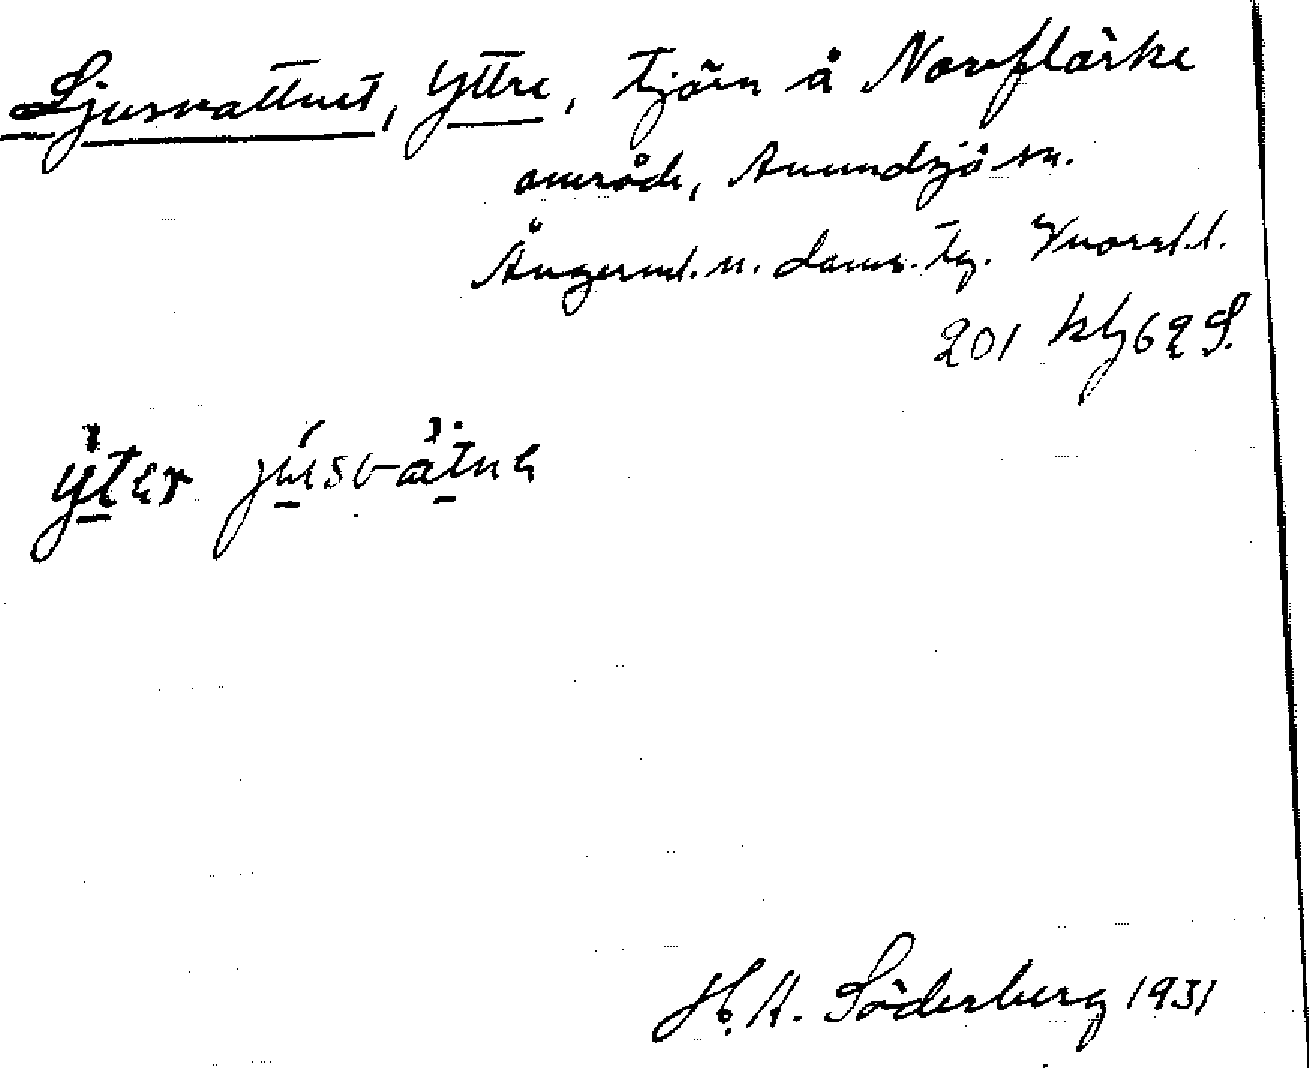 Ljusvattnet, Yttre, tjärn å Norrflärke
område, Anundsjö sn.
Ångerml. n. doms. tg. Västernorrl. l.
201 kbf 62 S.
y̱ter ju̱svaṯnɛ
H. A. Söderberg 1931